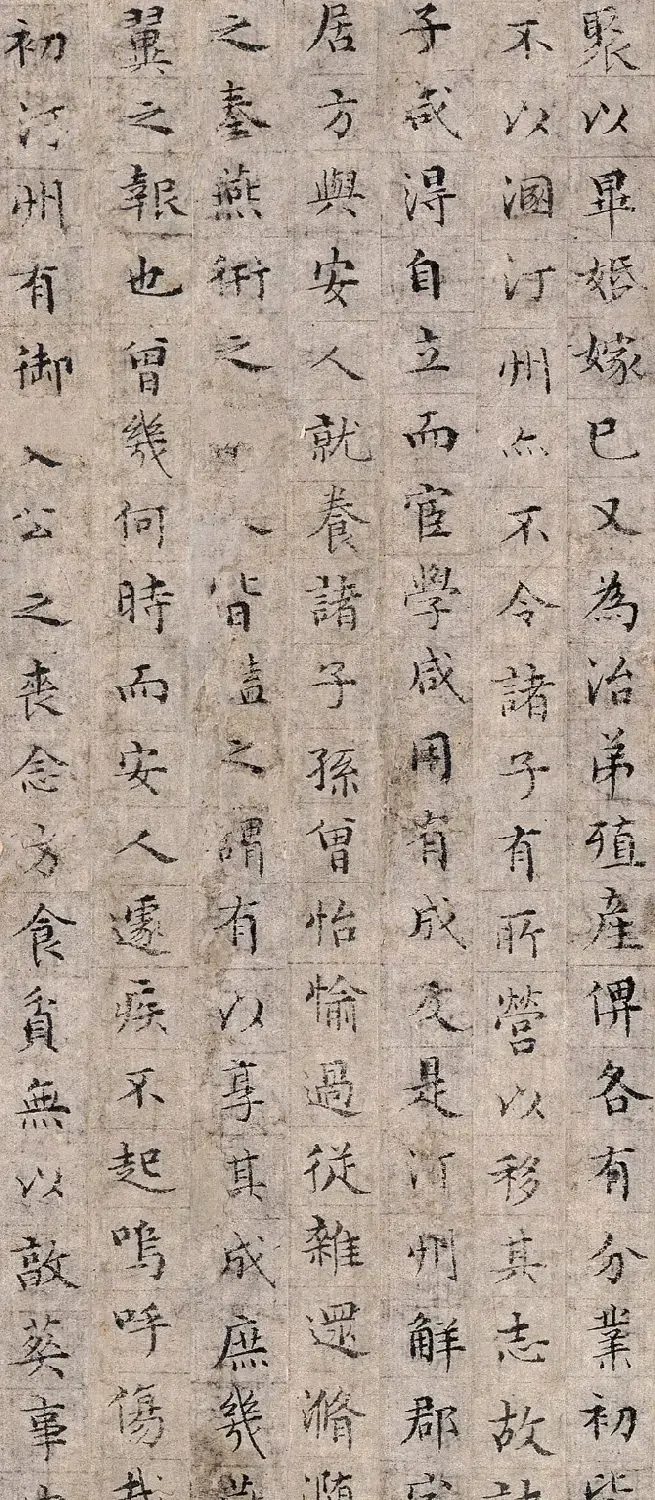 聚以畢婚嫁已又為治弟殖產俾各有分業初
不以溷汀州亦不令諸子有所營以移其志故
子咸得自立而宦學咸用有成及是汀州解郡
居方與安人就養諸子孫曾怡愉過從雜還滫
之臺燕術之人皆謂之謂有以享其成庶幾
翼之報也曾幾何時而安人遽疾不起嗚呼傷
初汀州有御人公之喪念方食貧無以敦葬事